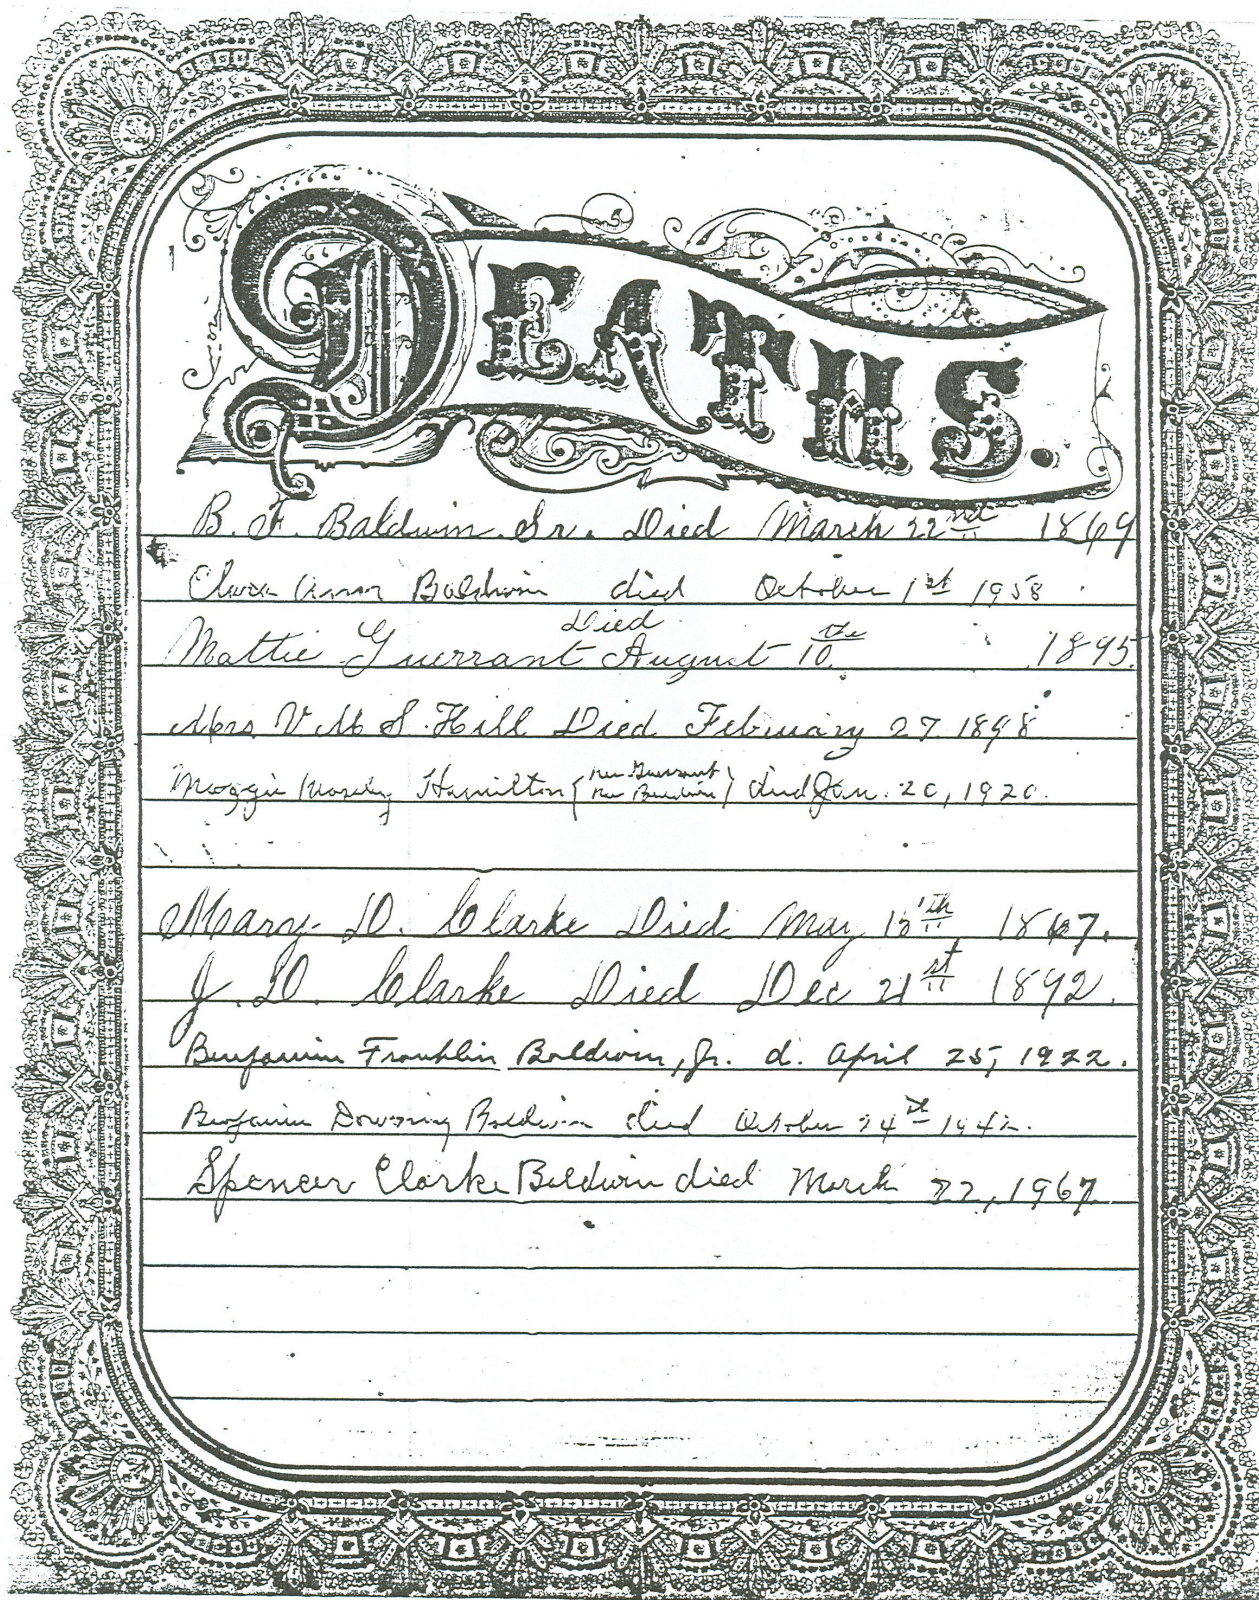 DEATHS.
B. F. Baldwin Sr. Died March 22nd 1869
Clara Ann Baldwin died October 1st 1958
Died
Mattie Guerrant August 10the 1895
Mrs V. M. S. Hill Died February 27 1898
nee Guerrant
Maggie Mosely Hamilton { nee Baldwin } died Jan. 20, 1920.
Mary D. Clarke Died May 'th 1867.
J. D. Clarke Died Dec 21st 1892.
Benjamin Franklin Baldwin, Jr. d. April 25, 1922.
Benjamin Downing Baldwin died October 24th 1942.
Spencer Clarke Baldwin died March 22, 1967